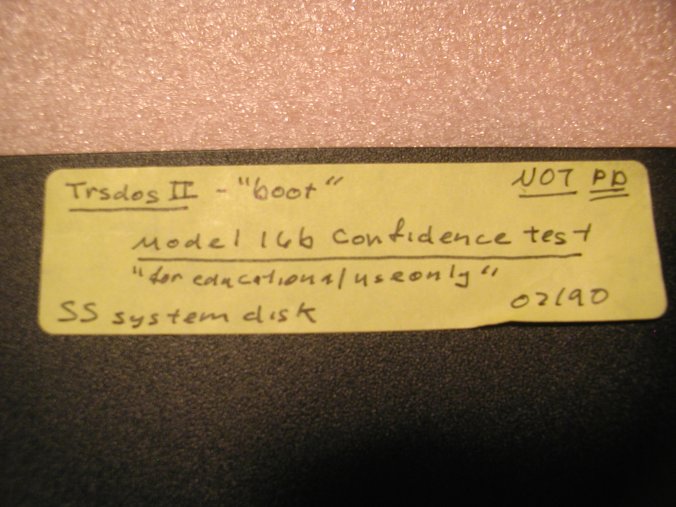 Trsdos II - "boot" NOT PD
Model 16b Confidence test
"for educational use only"
SS system disk 02/90